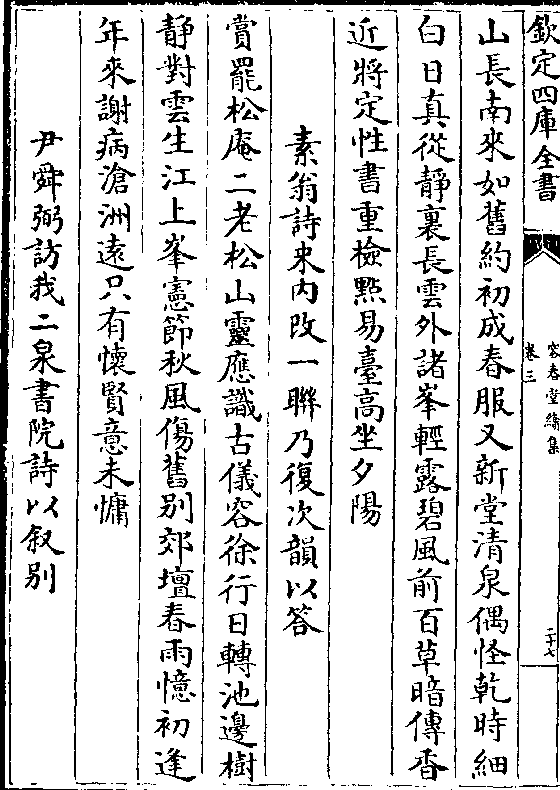 欽定四庫全書
容春堂續集
卷三
二十七
山長南來如舊約初成春服又新堂清泉偶怪乾時細
白日真從靜裏長雲外諸峯輕露碧風前百草暗傳香
近將定性書重檢㸃易臺高坐夕陽
素翁詩来内改一聯乃復次韻以答
賞罷松庵二老松山靈應識古儀容徐行日轉池邊樹
静對雲生江上峯憲節秋風傷舊别郊壇春雨憶初逢
年来謝病滄洲遠只有懷賢意未慵
尹舜弼訪我二泉書院詩以叙别